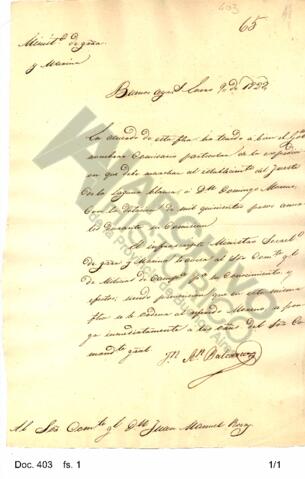 403
65
Minist.º de grra
y Marina
Buenos Ayres Enero 9 de 1832.
En acuerdo de esta fha ha tenido a bien el Gob
nombrar Comisario particular de la expedicion
en que debe marchar al establecimto del fuerte
de la laguna blanca á Dn Domingo Moreno
Con la dotacion de mil quinientos pesos anua
les durante su Comision
El infrascripto Ministro Secret.º
de grra y Marina lo avisa al Sor Comte gl
de Milicias de Campa pa su conocimiento y
efectos; siendo prevencion que en esta misma
fha se le ordena al referido Moreno se pon
ga inmediatamente a las orns del Sor Co
mandte gral.
Balcarce
Al Sor Comte gl Dn Juan Manuel Rosas
ARCHIVO
HISTÓRICO
de la Provincia de Buenos Aires
Doc. 403 fs. 1
1/1